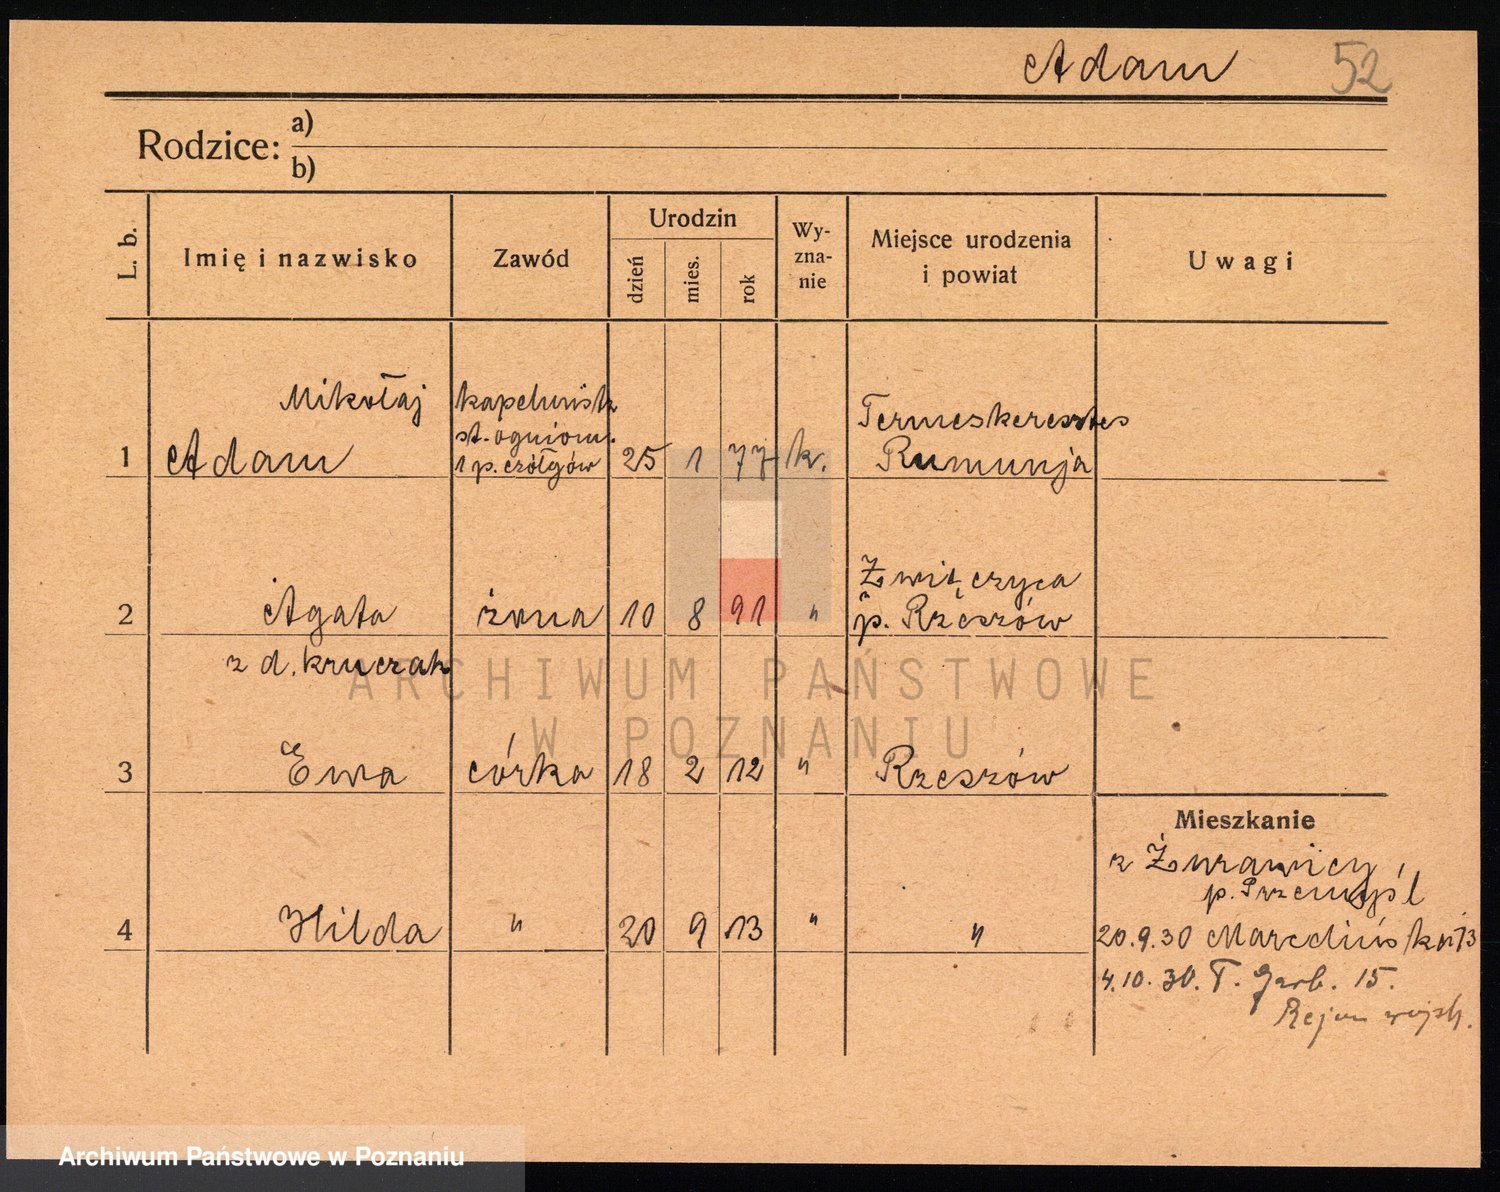 Adam 52
Rodzice: a)
b)
L. b.
Imię i nazwisko
Zawód
Urodzin
dzień
mies.
rok
Wy-
zna-
nie
Miejsce urodzenia
i powiat
Uwagi
Mikołaj
kapelmistr
st. ogniom.
Termeskeresztes
1 Adam 1 p. czółgów 25 1 77 k. Rumunja
Zwięczyca
2 Agata żona 10 8 91 " p. Rzeszów
z d. Kruczak
3 Ewa córka 18 2 12 " Rzeszów
Mieszkanie
z Żurawicy,
p. Przemyśl
4 Hilda " 20 9 13 " "
20.9.30 Marcelińska 73
4.10.30. T. Garb. 15.
Rejon wojsk.
ARCHIWUM PAŃSTWOWE
W POZNANIU
Archiwum Państwowe w Poznaniu